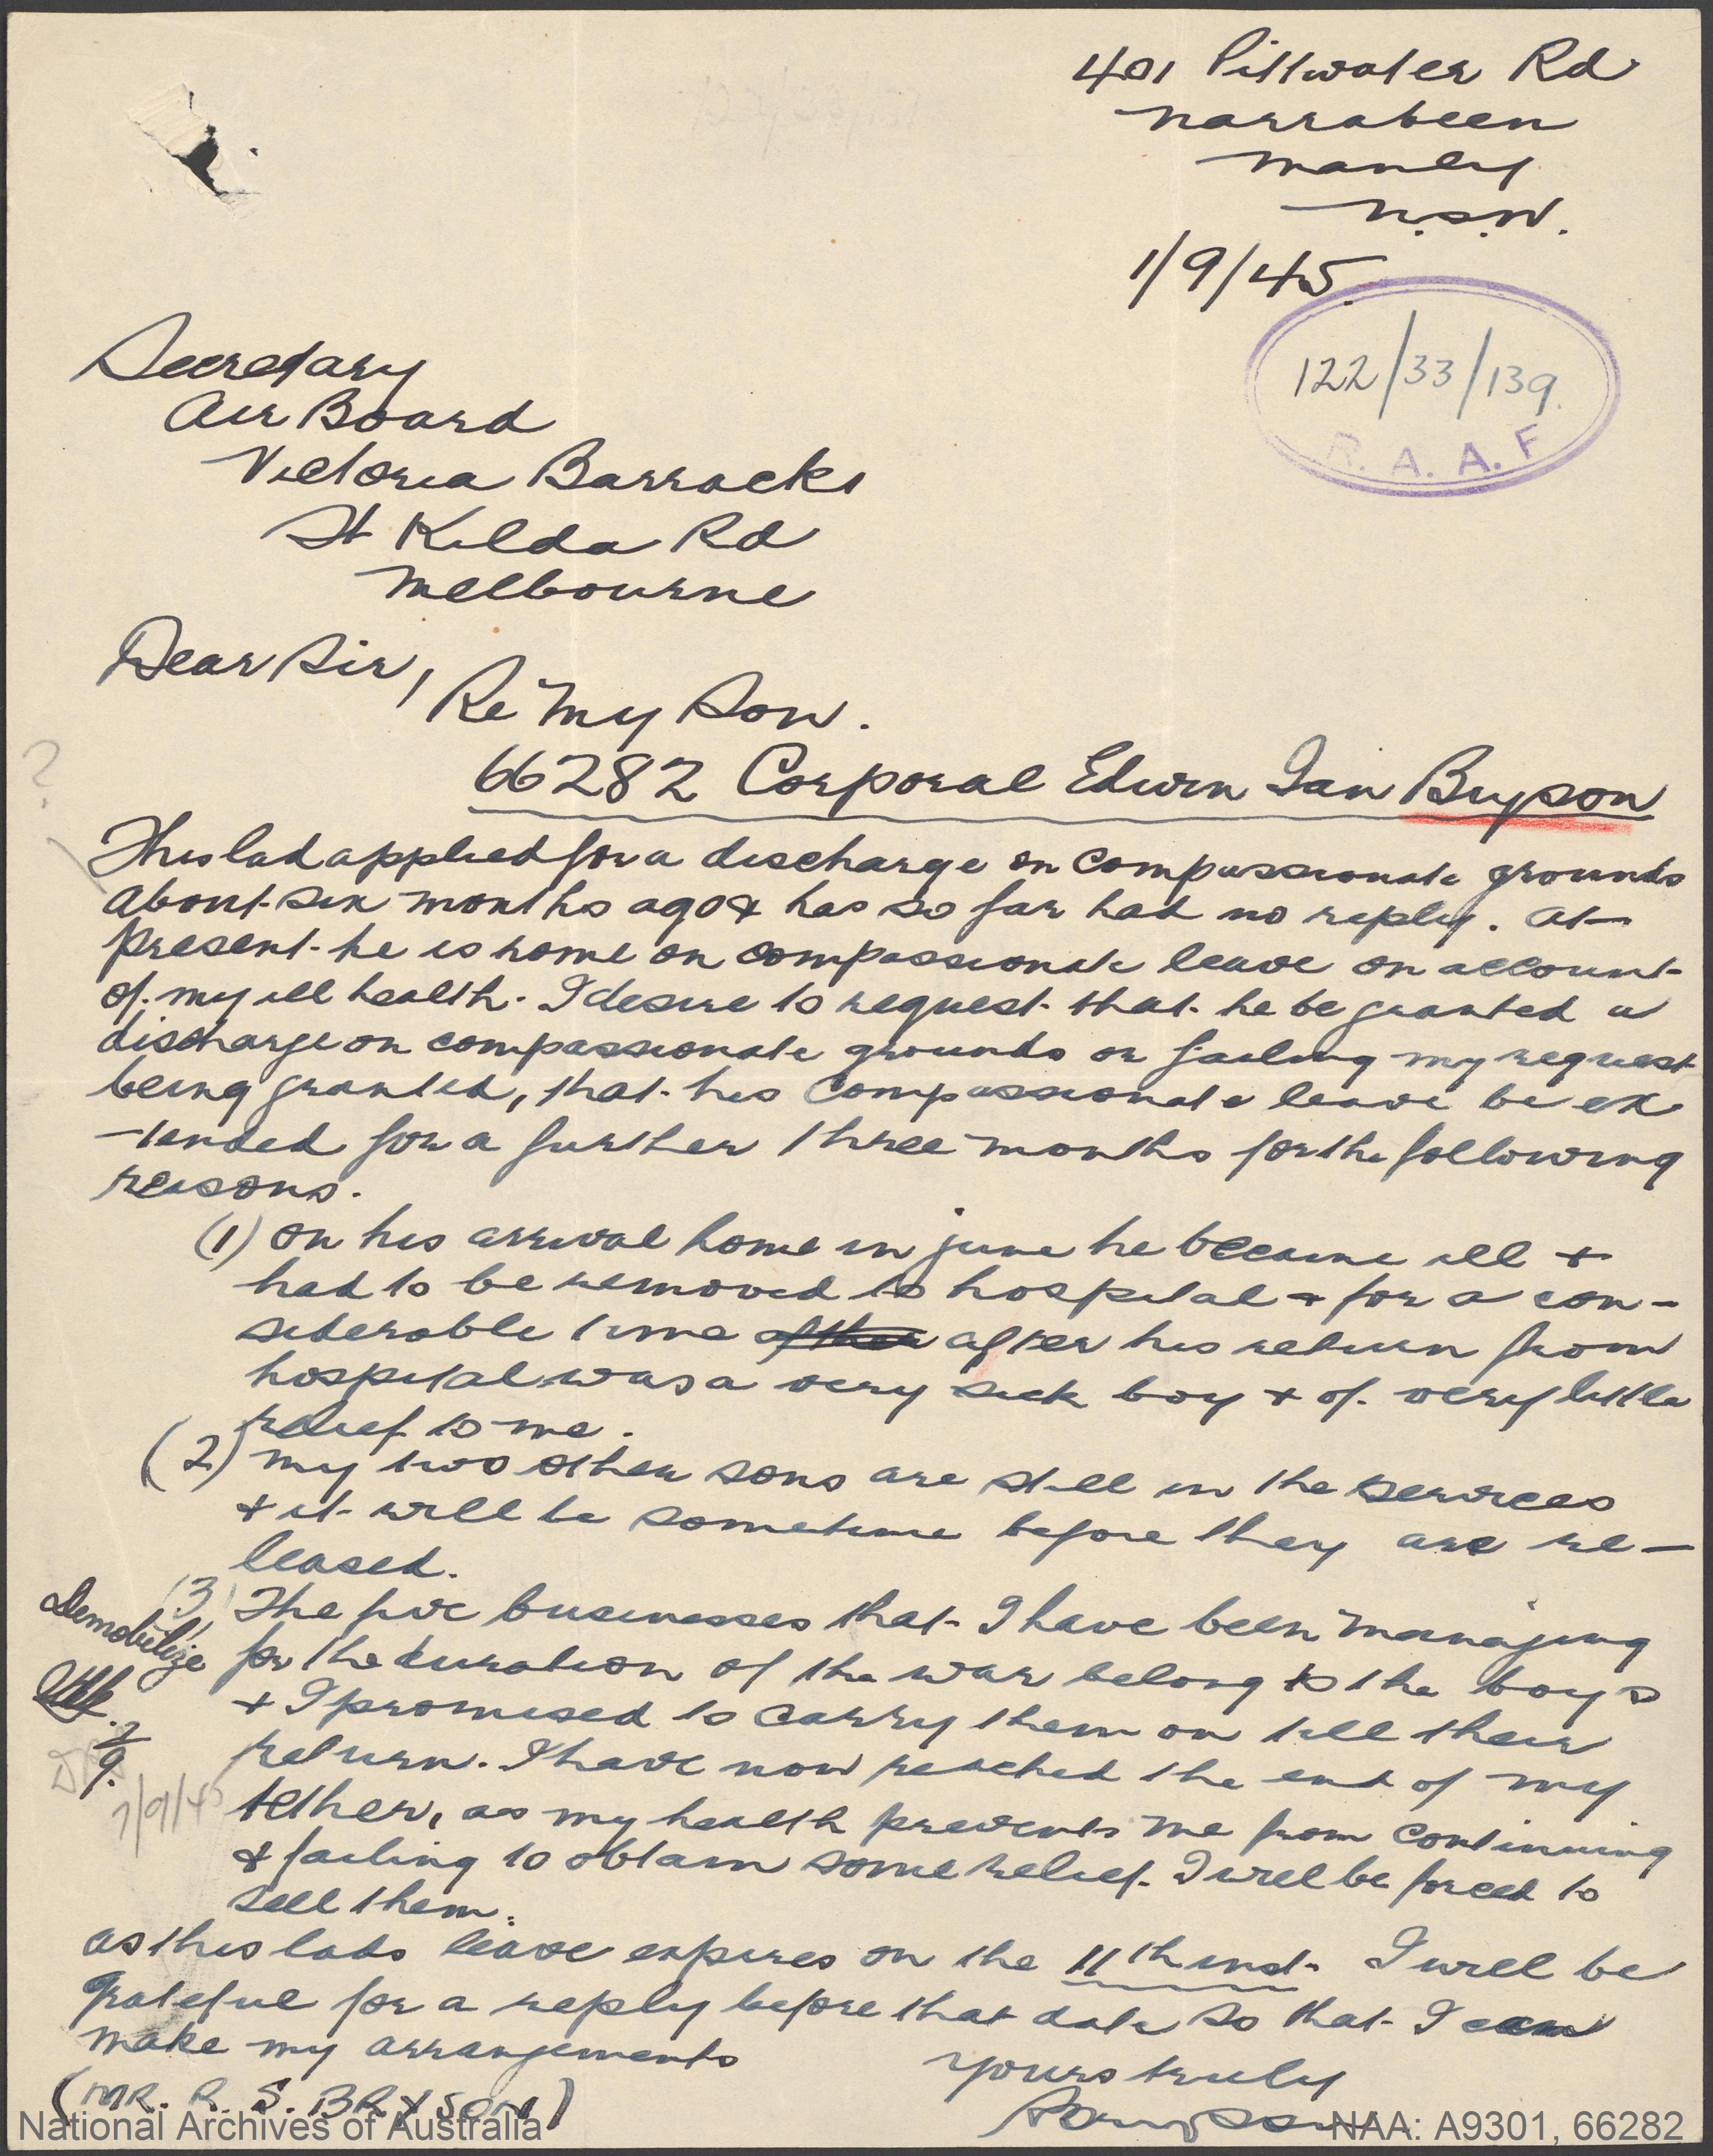 401 Pittwater Rd
Narrabeen
Manly
N.S.W.
1/9/45.
122/33/139.
R. A. A. F
Secretary
Air Board
Victoria Barracks
St Kilda Rd
Melbourne
Dear Sir,
Re My Son.
66282 Corporal Edwin Ian Bryson
?
This lad applied for a discharge on compassionate grounds
about six months ago & has so far had no reply. At
present he is home on compassionate leave on account
of my ill health. I desire to request that he be granted a
discharge on compassionate grounds or failing my request
being granted, that his compassionate leave be ex
-tended for a further three months for the following
reasons.
(1) On his arrival home in June he became ill &
had to be removed to hospital & for a con-
siderable time after his return from
hospital was a very sick boy & of very little
relief to me.
(2) My two other sons are still in the services
& it will be sometime before they are re-
leased.
(3) The five businesses that I have been managing
for the duration of the war belong to the boys
& I promised to carry them on till their
return. I have now reached the end of my
tether, as my health prevents me from continuing
& failing to obtain some relief I will be forced to
sell them.
Demobilize
7/9.
7/9/45
As this lads leave expires on the 11th inst. I will be
grateful for a reply before that date so that I can
make my arrangements
Yours truly
(MR. R. S. BRYSON)
National Archives of Australia
NAA: A9301, 66282